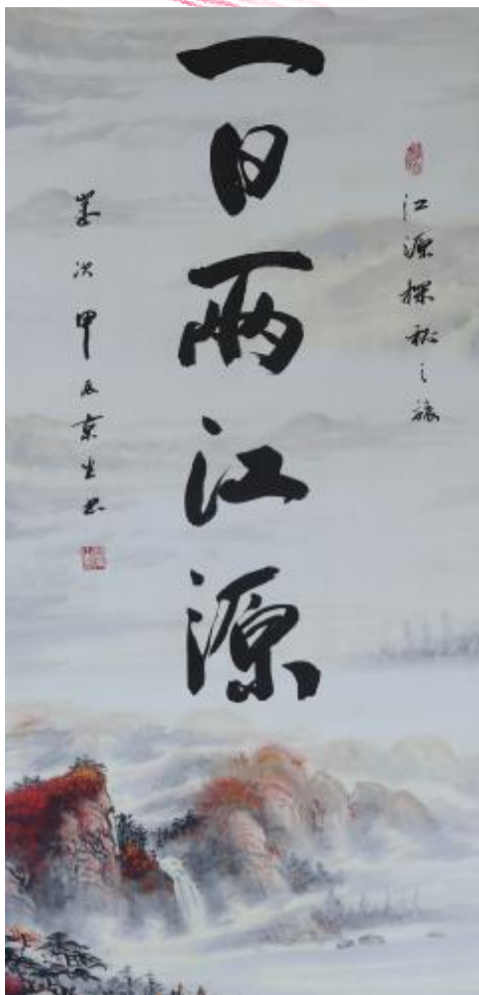 江源探秘之旅
一日两江源
岁次甲辰京生书